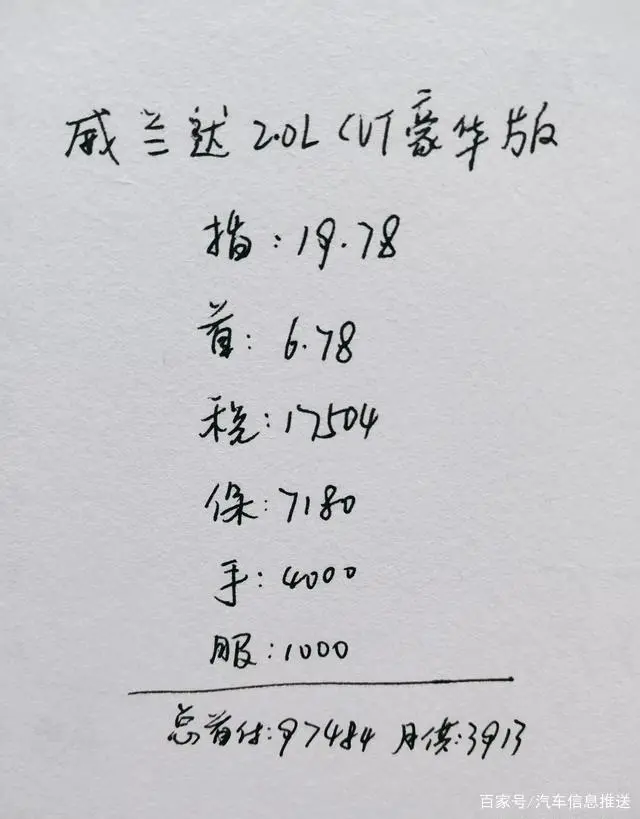 威兰达2.0L CVT豪华版
指:19.78
首:6.78
税:17504
保:7180
手:4000
服:1000
总首付:97484 月供:3913
百家号/汽车信息推送